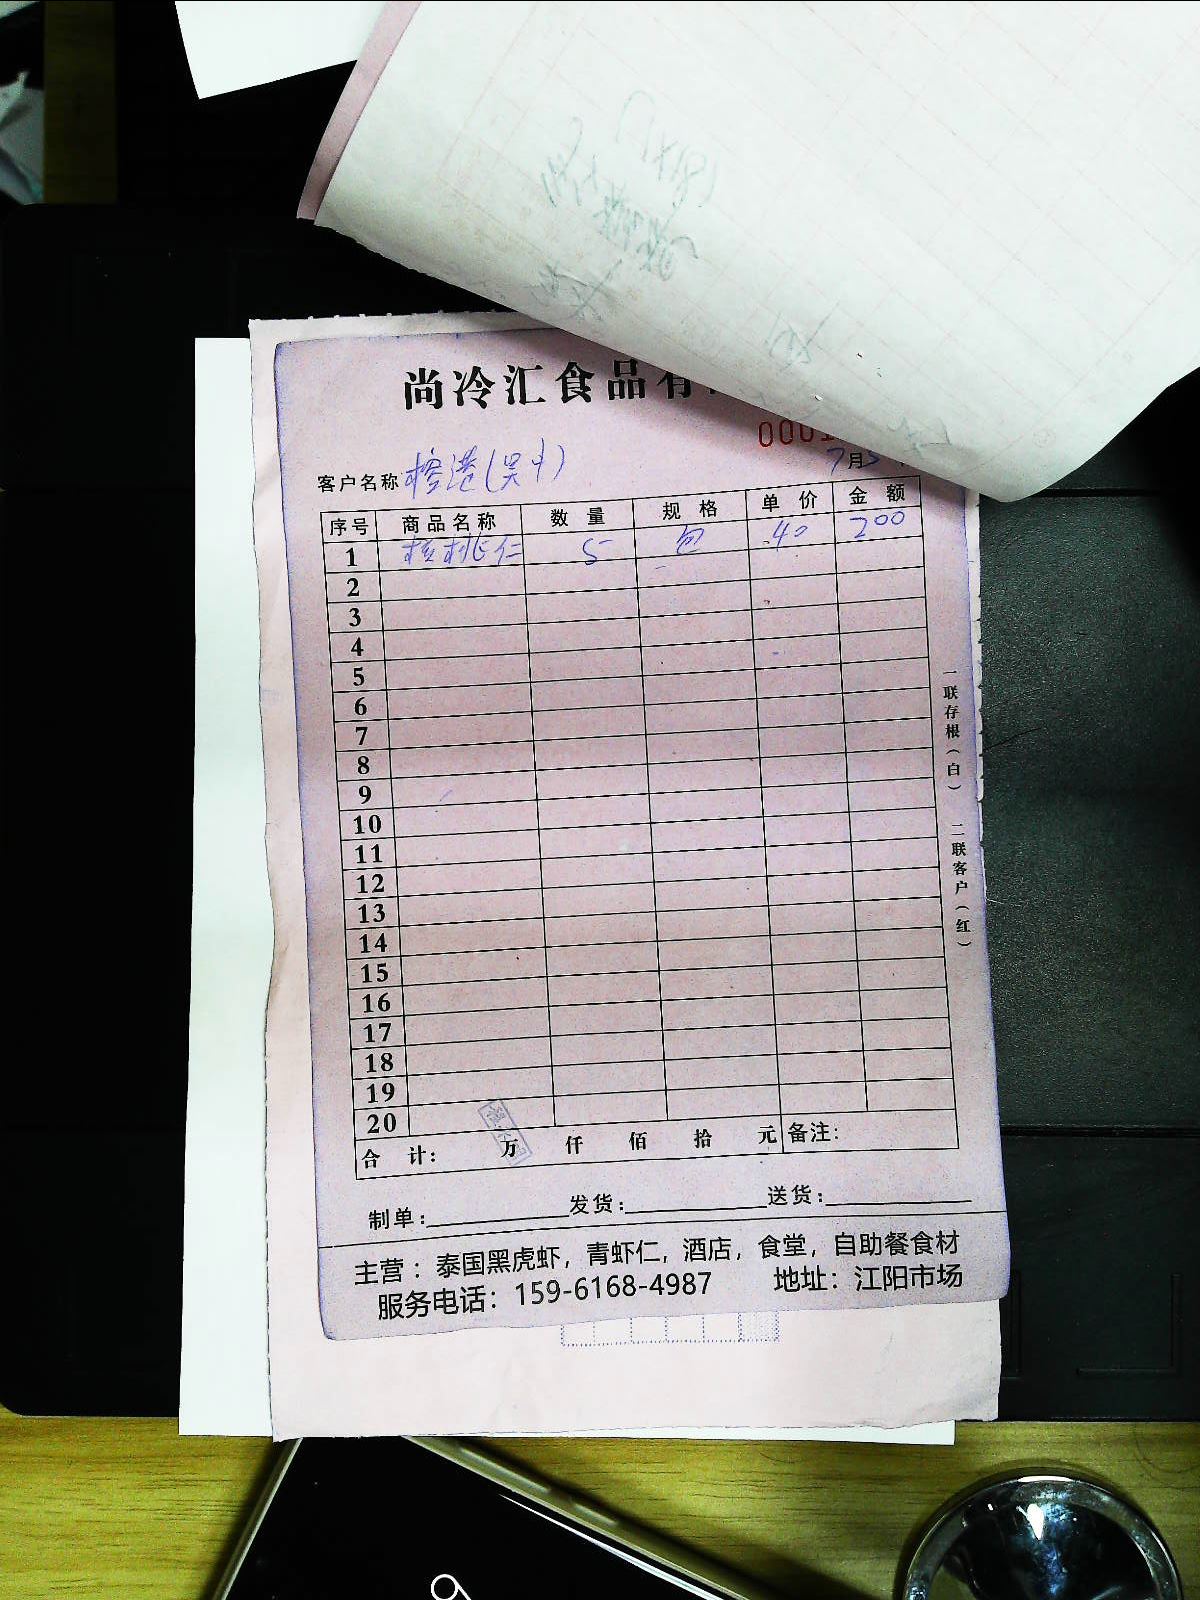 尚冷汇食品有
0001
7月5
客户名称 榕港(吴中)
序号 商品名称 数量 规格 单价 金额
1 核桃仁 5 包 40 200
2
3
4
5
6
7
8
9
10
11
12
13
14
15
16
17
18
19
20
合计: 万 仟 佰 拾 元 备注:
制单: 发货: 送货:
主营：泰国黑虎虾，青虾仁，酒店，食堂，自助餐食材
服务电话：159-6168-4987 地址：江阳市场
一联存根（白） 二联客户（红）